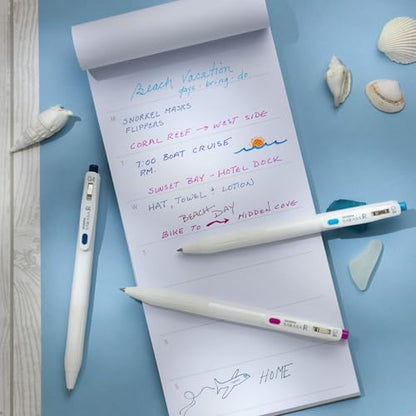 Beach Vacation
days · bring · do
M
SNORKEL MASKS
FLIPPERS
CORAL REEF → WEST SIDE
T
7:00 BOAT CRUISE
P.M.
SUNSET BAY - HOTEL DOCK
W
HAT, TOWEL + LOTION
BEACH DAY
BIKE TO → HIDDEN COVE
T
F
S
S
HOME
04
SARASA R
SARASA R
SARASA R